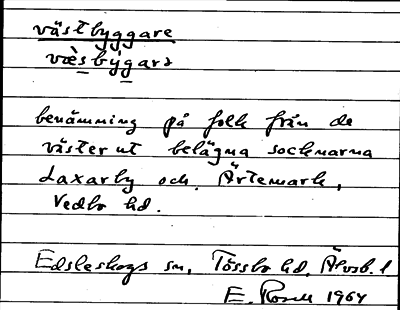 västbyggare
væ̀sby̗gara
benämning på folk från de
väster ut belägna socknarna
Laxarby och Ärtemark,
Vedbo hd.
Edsleskogs sn, Tössbo hd, Älvsb. l
E. Rosell 1964